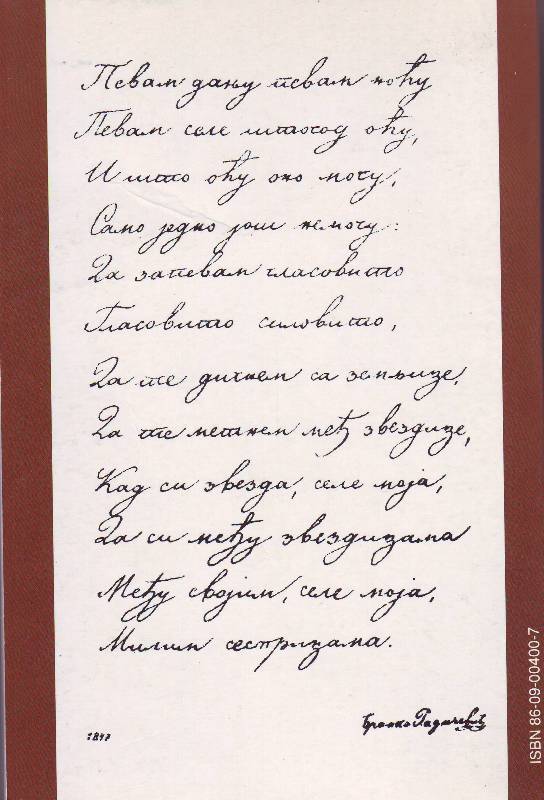 Певам дању певам ноћу
Певам селе штогод оћу,
И што оћу оно могу,
Само једно још немогу:
Да запевам гласовито
Гласовито силовито,
Да те дигнем са земљизе,
Да те метнем међ звездизе,
Кад си звезда, селе моја,
Да си међу звездизама
Међу својим, селе моја,
Милим сестризама.
Бранко Радичевић
ISBN 86-09-00400-7